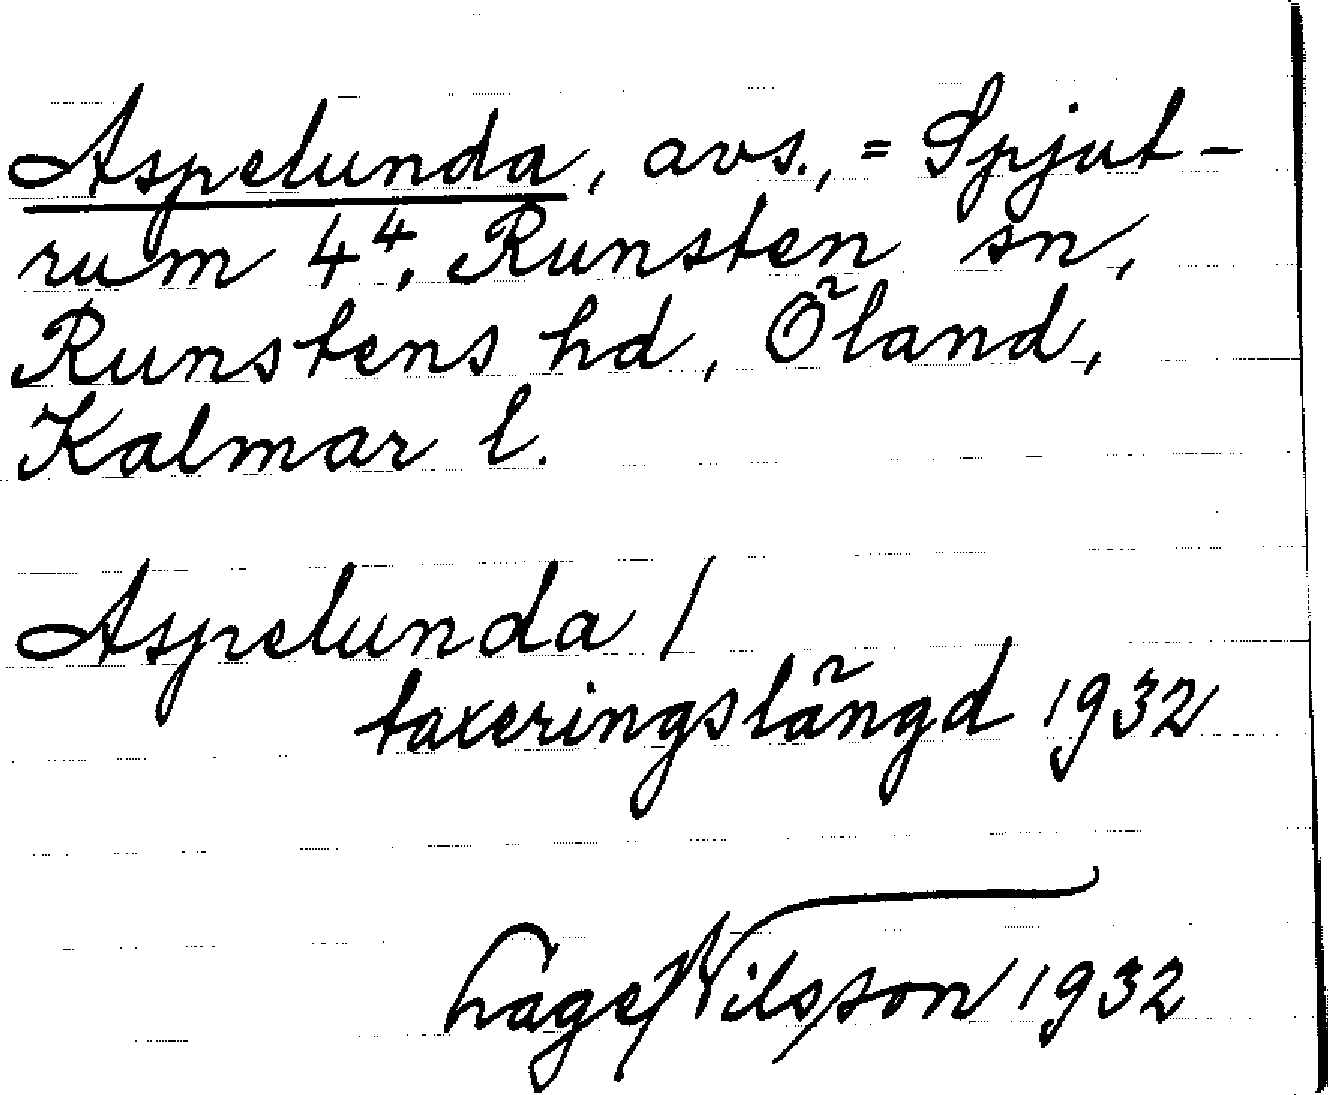 Aspelunda, avs., = Spjut-
rum 4⁴, Runsten sn,
Runstens hd, Öland,
Kalmar l.
Aspelunda /
taxeringslängd 1932
Nilsson 1932